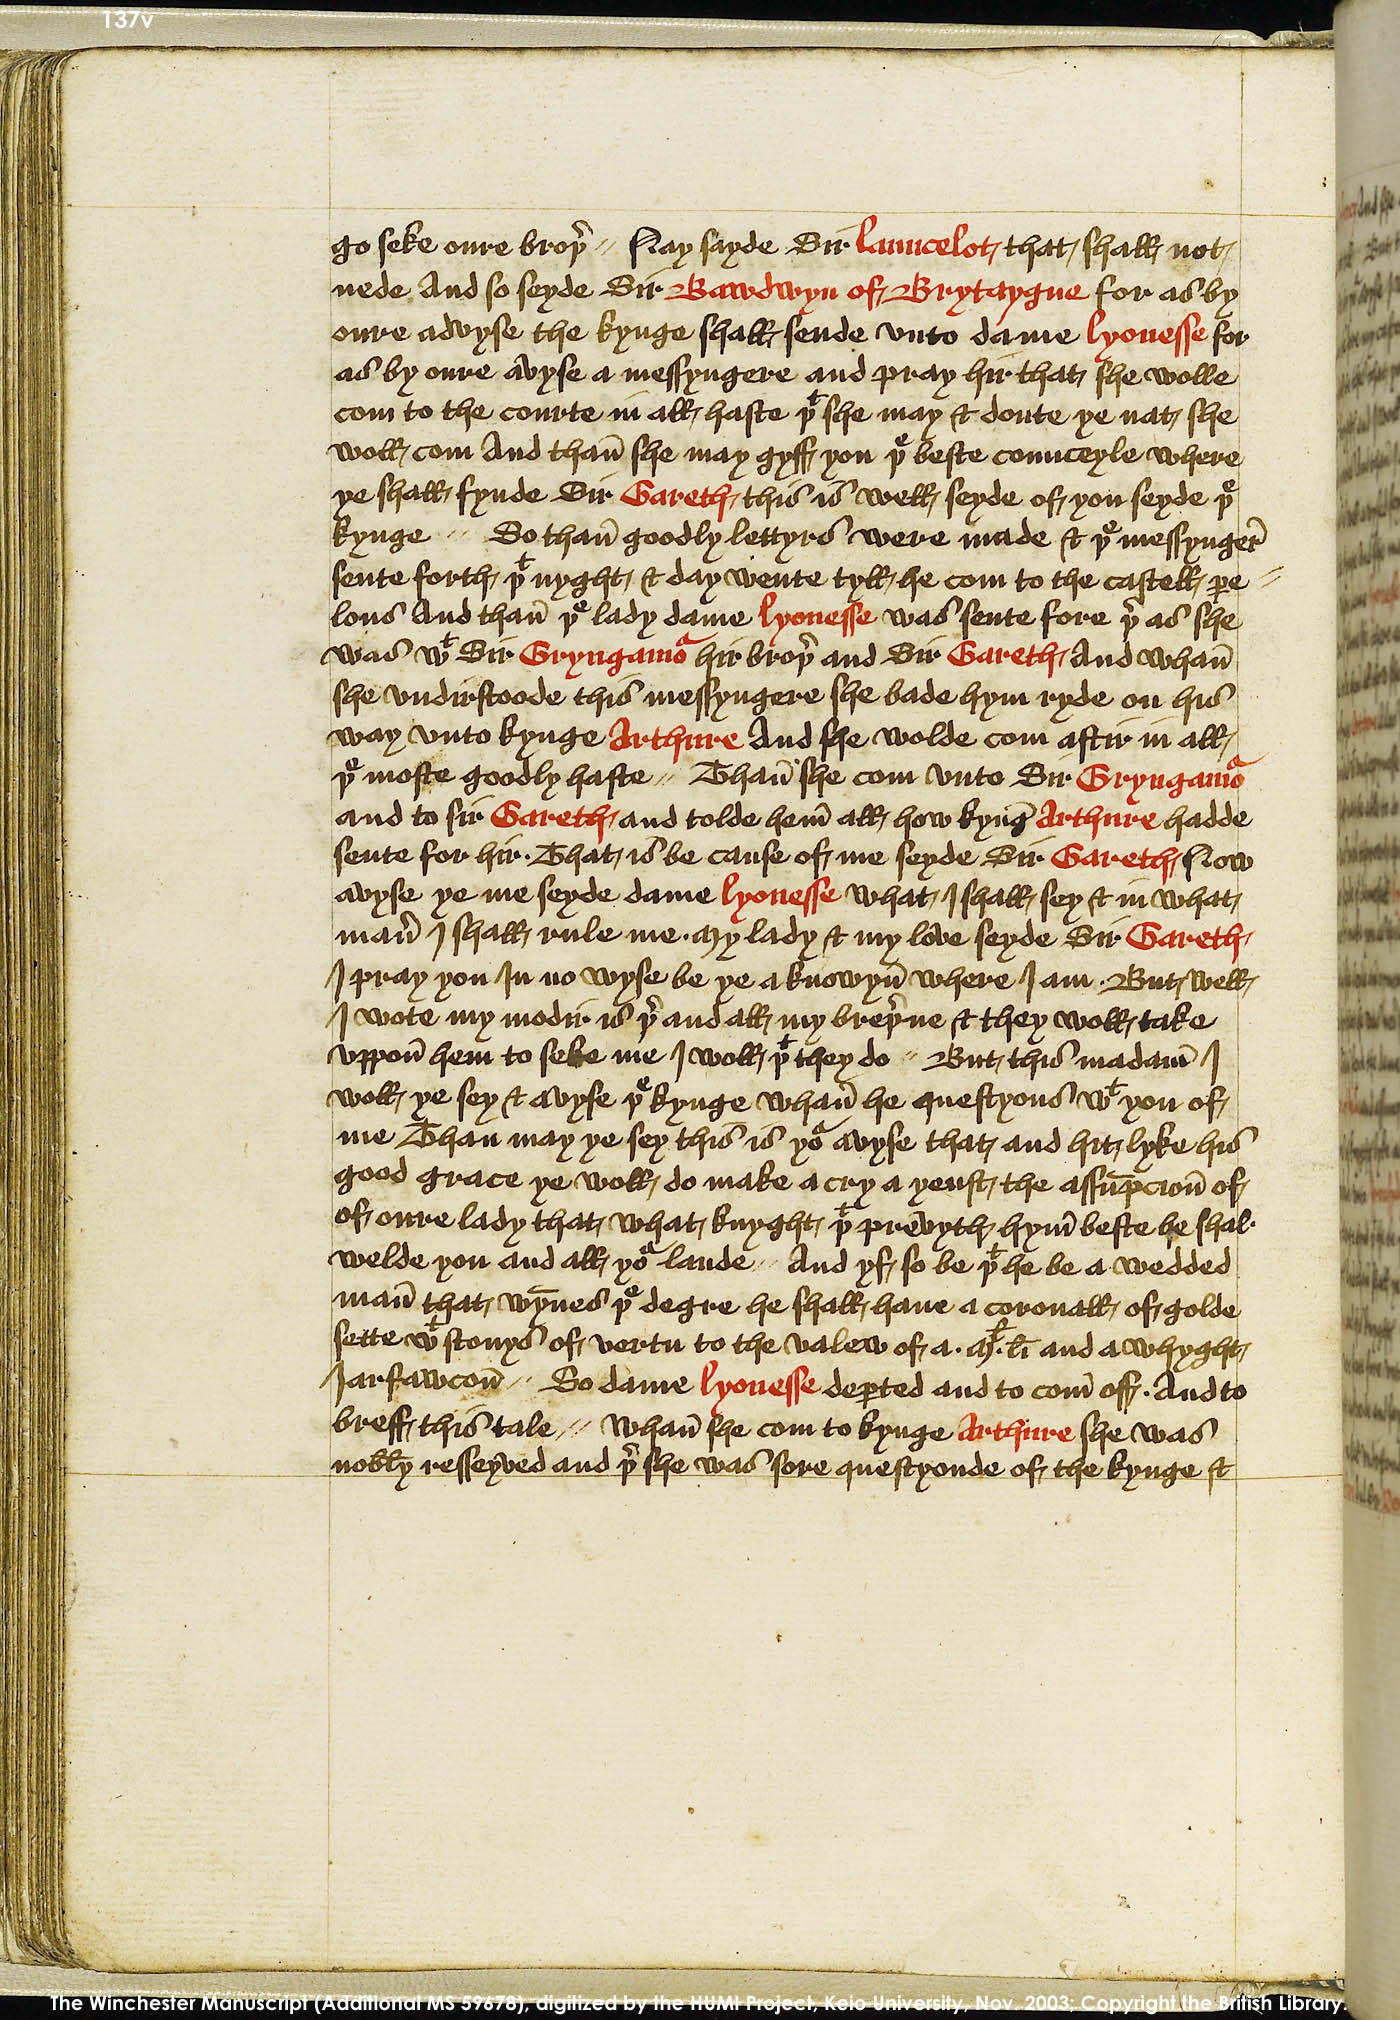 137v
go seke oure broþ̉ // Nay sayde Sir Launcelot that shall not
nede And so seyde Sir Bawdwyn of Brytaygne for as by
oure advyse the kynge shall sende vnto dame lyonesse for
as by oure avyse a messyngere and pray hir that she wolle
com to the courte in all haste þᵗ she may & doute ye nat she
woll com And than̄ she may gyff you þᵉ beste counceyle where
ye shall fynde Sir Gareth this is well seyde of you seyde þᵉ
kynge // So than̄ goodly lettyrs were made & þᵉ messynger̉
sente forth þᵗ nyght & day wente tyll he com to the castell ꝑe //
lous And than̄ þᵉ lady dame lyonesse was sente fore þ̉ as she
was wᵗ Sir Gryngamoᵃ hir broþ̉ and Sir Gareth And whan̄
she vndirstoode this messyngere she bade hym ryde on his
way vnto kynge Arthure And she wolde com aftir in all
þᵉ moste goodly haste // Than̄ she com vnto Sir Gryngamoᵃ
and to sir Gareth and tolde hem̄ all how kyng̉ Arthure hadde
sente for hir. That is be cause of me seyde Sir Gareth Now
avyse ye me seyde dame lyonesse what I shall sey & in what
man̉ I shall rule me. My lady & my love seyde Sir Gareth
I pray you In no wyse be ye a knowyn̄ where I am. But well
I wote my modir is þ̉ and all my breþ̉ne & they woll take
vppon̄ hem to seke me I woll þᵗ they do // But this madam̄ I
woll ye sey & avyse þᵉ kynge whan̄ he questyons wᵗ you of
me Than may ye sey this is yoᵃ avyse that and hit lyke his
good grace ye woll do make a cry a yenst the assūpcion̄ of
of oure lady that what knyght þᵗ prevyth hym̄ beste he shal.
welde you and all yoᵃ lande // And yf so be þᵗ he be a wedded
man̄ that wȳnes þᵉ degre he shall haue a coronall of golde
sette wᵗ stonys of vertu to the valew of a. Mˡ. lī and a whyght
Iarfawcon̄ // So dame lyonesse deꝑted and to com̄ off. And to
breff this tale // whan̄ she com to kynge Arthure she was
nobly resseyved and þ̉ she was sore questyonde of the kynge &
The Winchester Manuscript (Additional MS 59678), digitized by the HUMI Project, Keio University, Nov. 2003; Copyright the British Library.